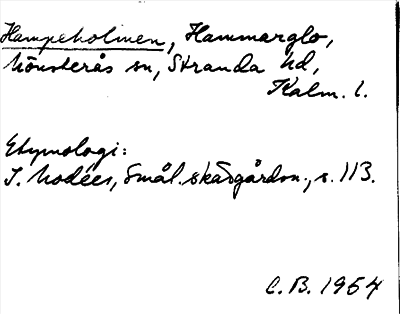 Hampeholmen, Hammarglo,
Mönsterås sn, Stranda hd,
Kalm. l.
Etymologi:
I. Modéer, Smål. skärgårdsn., s. 113.
C.B. 1954